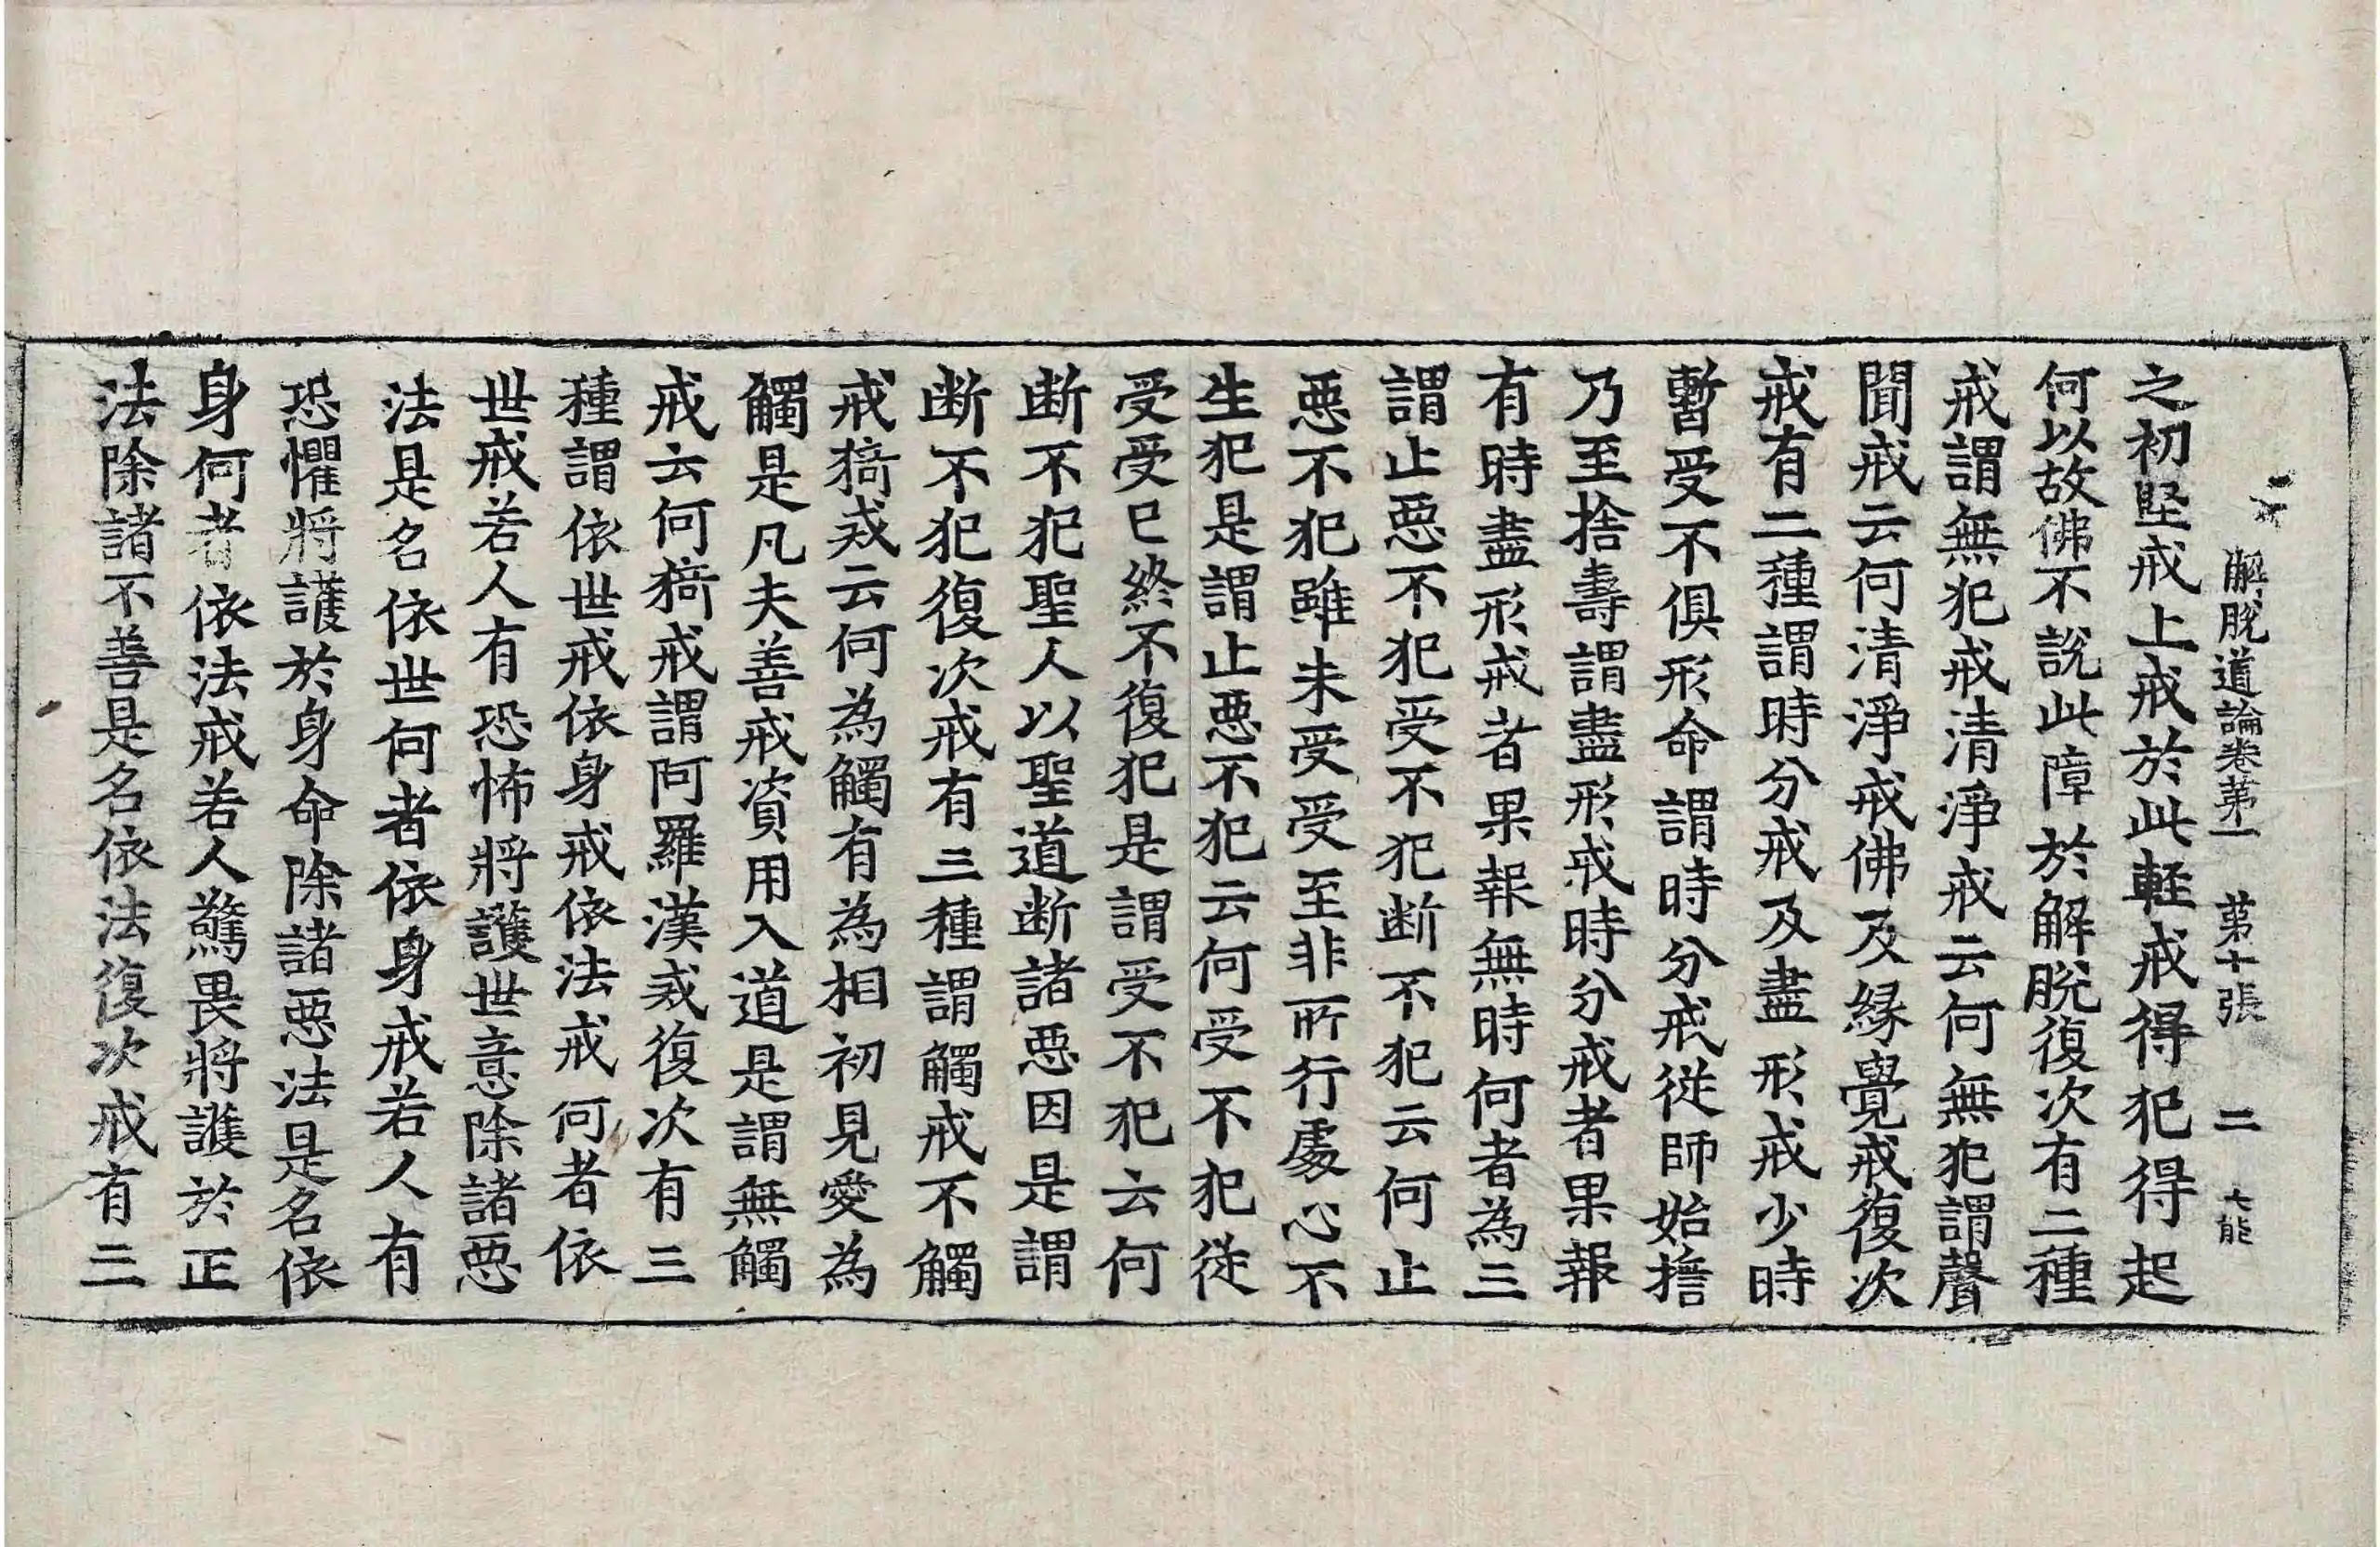 解脫道論卷第一 第十張 二
之初堅戒上戒於此軽戒得犯得起
何以故佛不說此障於解脫復次有二種
戒謂無犯戒清淨戒云何無犯謂聲
聞戒云何清淨戒佛及緣覺戒復次
戒有二種謂時分戒及盡形戒少時
暫受不俱形命謂時分戒從師始擔
乃至捨壽謂盡形戒時分戒者果報
有時盡形戒者果報無時何者為三
謂止惡不犯受不犯断不犯云何止
惡不犯雖未受受至非所行處心不
生犯是謂止惡不犯云何受不犯從
受受已終不復犯是謂受不犯云何
断不犯聖人以聖道断諸惡因是謂
断不犯復次戒有三種謂觸戒不觸
戒猗戒云何為觸有為相初見愛為
觸是凡夫善戒資用入道是謂無觸
戒云何猗戒謂阿羅漢戒復次有三
種謂依世戒依身戒依法戒何者依
世戒若人有恐怖將護世意除諸惡
法是名依世何者依身戒若人有
恐懼將護於身命除諸惡法是名依
身何者依法戒若人驚畏將護於正
法除諸不善是名依法復次戒有三